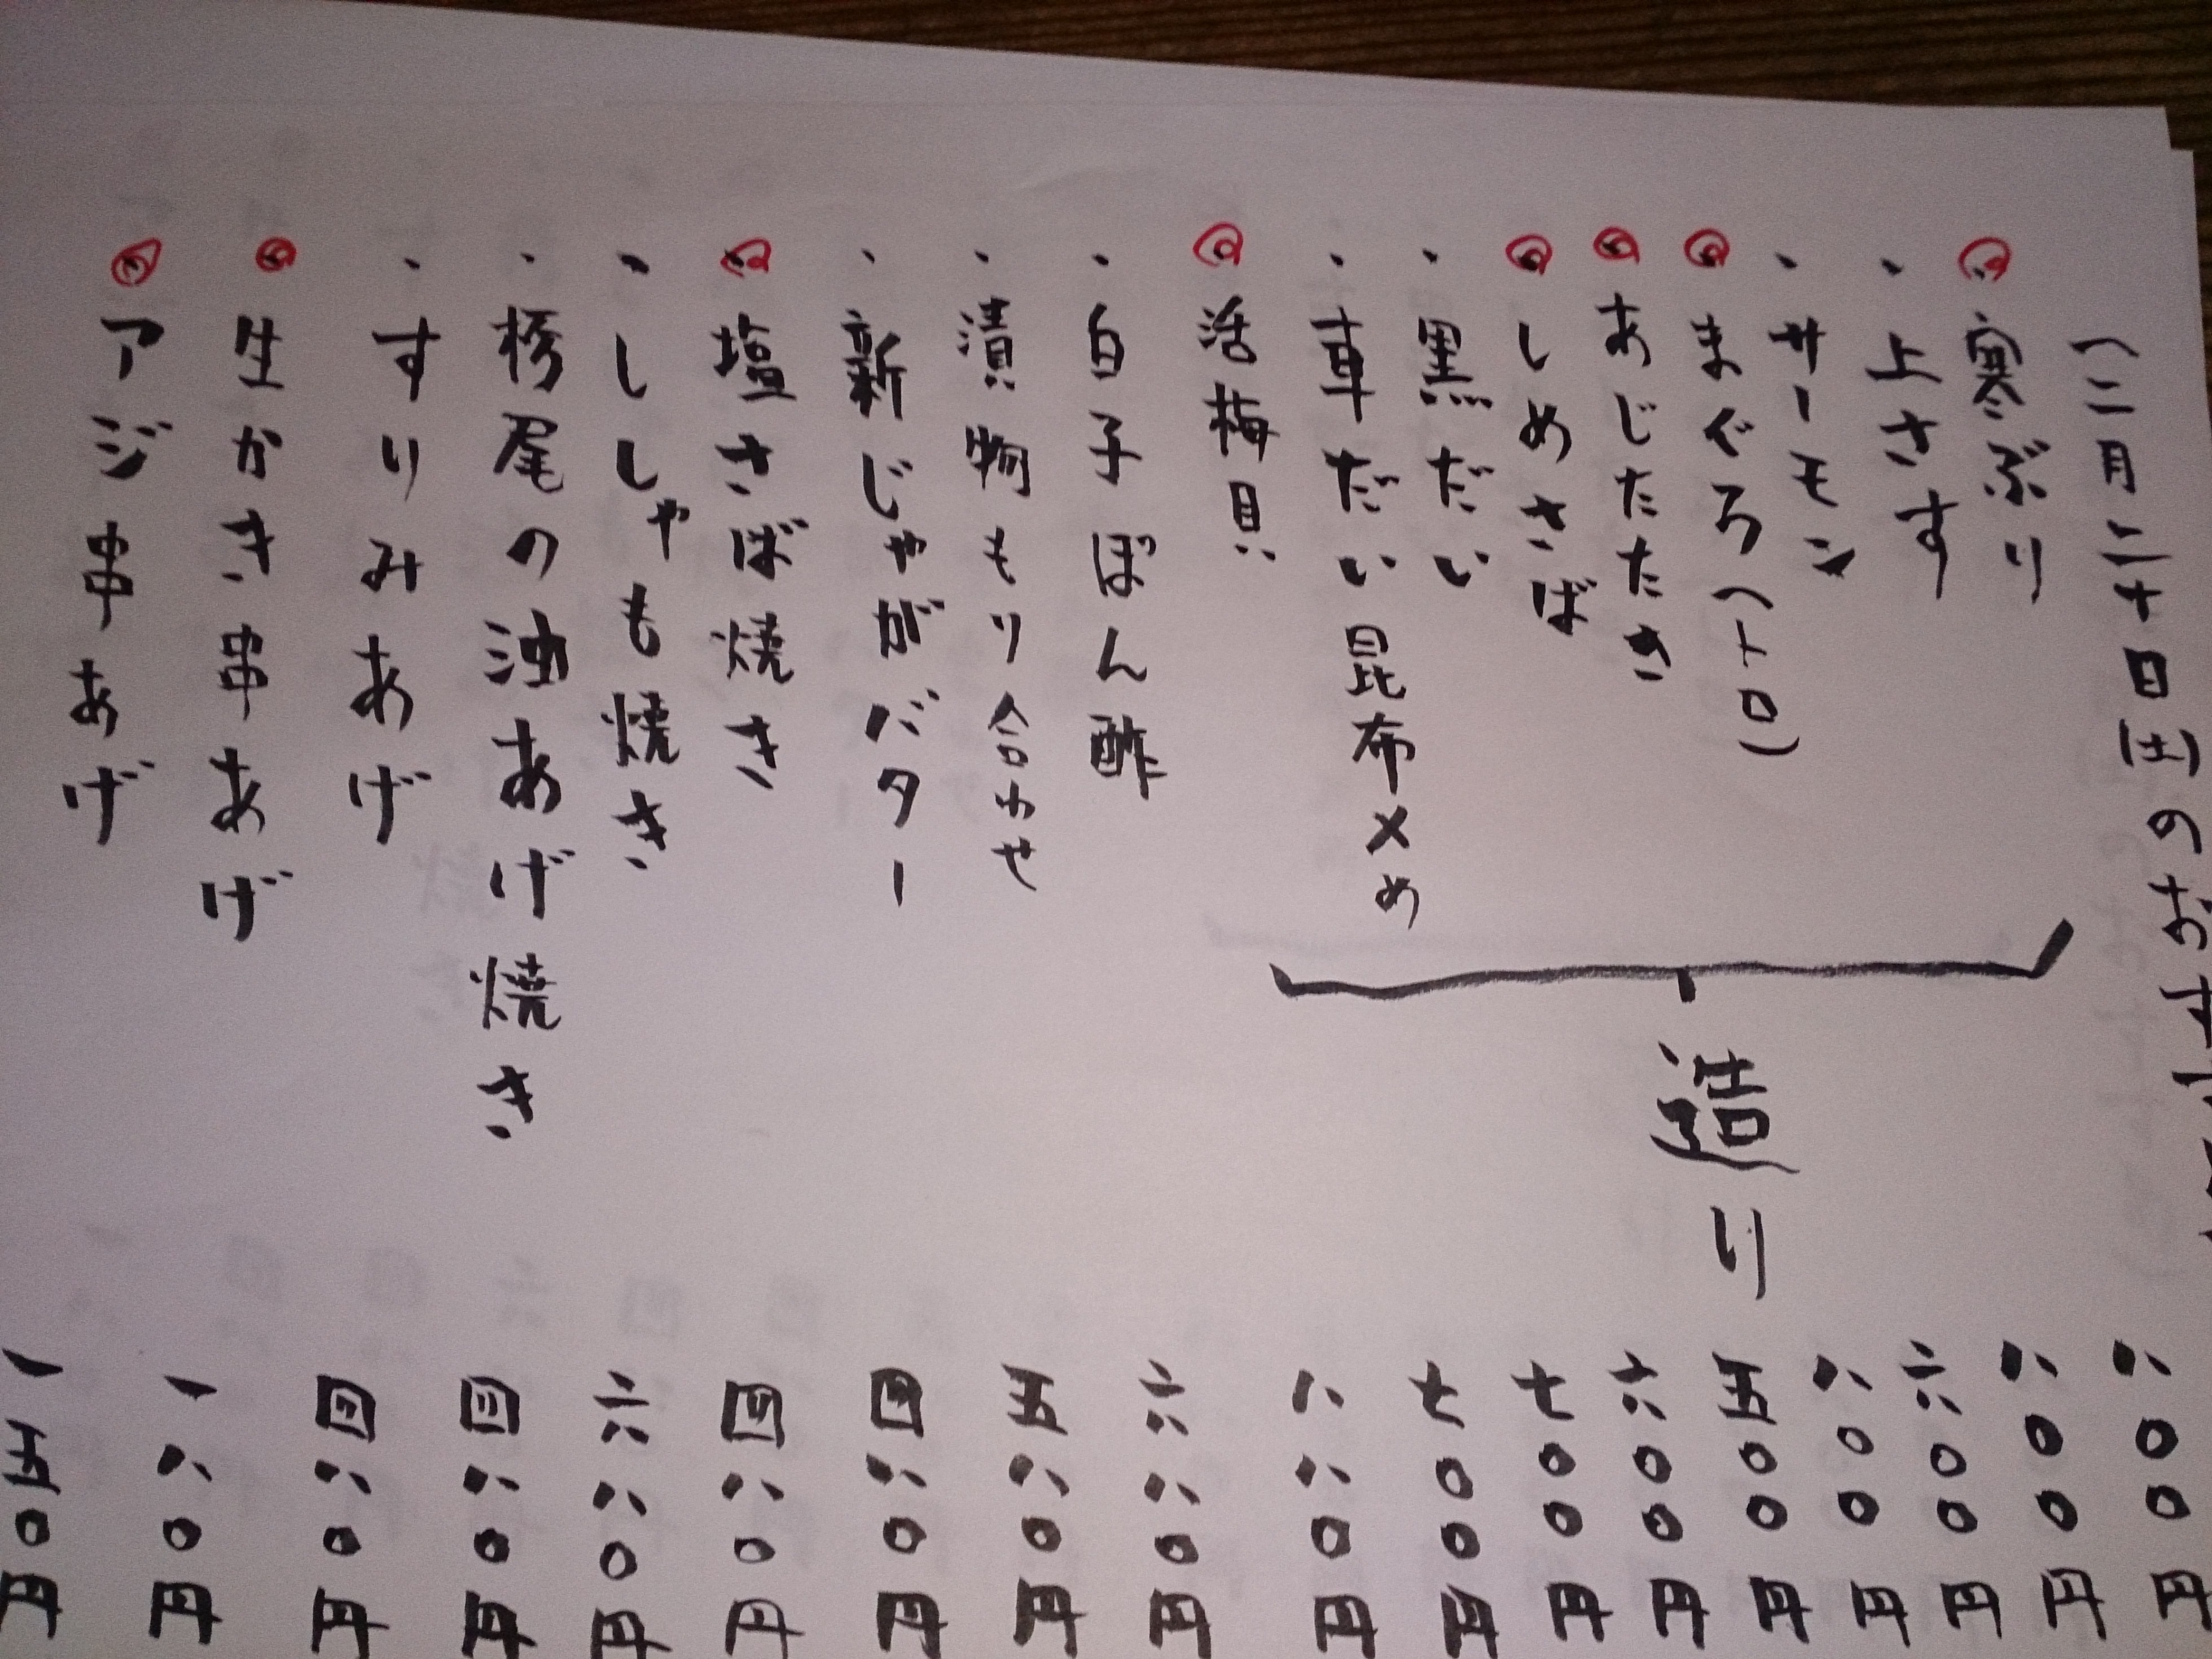 (二月二十日(土)のおすす
寒ぶり 八〇〇円
上さす 八〇〇円
サーモン 六〇〇円
まぐろ(トロ) 八〇〇円
あじたたき 五〇〇円
しめさば 六〇〇円
黒だい 七〇〇円
車だい昆布〆め 七〇〇円
造り
活梅貝 八八〇円
白子ぽん酢 六八〇円
漬物もり合わせ 五八〇円
新じゃがバター 四八〇円
塩さば焼き 四八〇円
ししゃも焼き 六八〇円
栃尾の油あげ焼き 四八〇円
すりみあげ 四八〇円
生かき串あげ 一八〇円
アジ串あげ 一五〇円